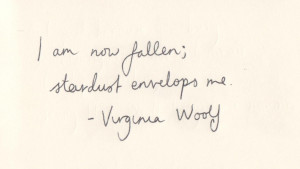 I am now fallen;
stardust envelops me.
- Virginia Woolf